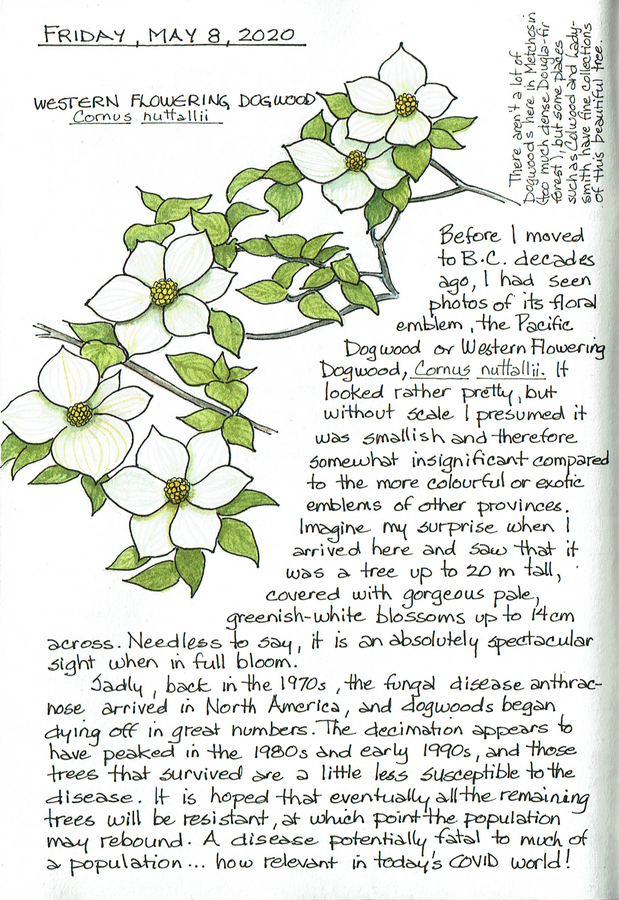 FRIDAY, MAY 8, 2020
WESTERN FLOWERING DOGWOOD
Cornus nuttallii
There aren't a lot of
Dogwoods here in Metchosin
(too much dense Dougla-fir
forest), but some places
such as Colwood and Lady-
smith have fine collections
of this beautiful tree.
Before I moved
to B.C. decades
ago, I had seen
photos of its floral
emblem, the Pacific
Dogwood or Western Flowering
Dogwood, Cornus nuttallii. It
looked rather pretty, but
without scale I presumed it
was smallish and therefore
somewhat insignificant compared
to the more colourful or exotic
emblems of other provinces.
Imagine my surprise when I
arrived here and saw that it
was a tree up to 20 m tall,
covered with gorgeous pale,
greenish-white blossoms up to 14cm
across. Needless to say, it is an absolutely spectacular
sight when in full bloom.
Sadly, back in the 1970s, the fungal disease anthrac-
nose arrived in North America, and dogwoods began
dying off in great numbers. The decimation appears to
have peaked in the 1980s and early 1990s, and those
trees that survived are a little less susceptible to the
disease. It is hoped that eventually all the remaining
trees will be resistant, at which point the population
may rebound. A disease potentially fatal to much of
a population... how relevant in today's COVID world!